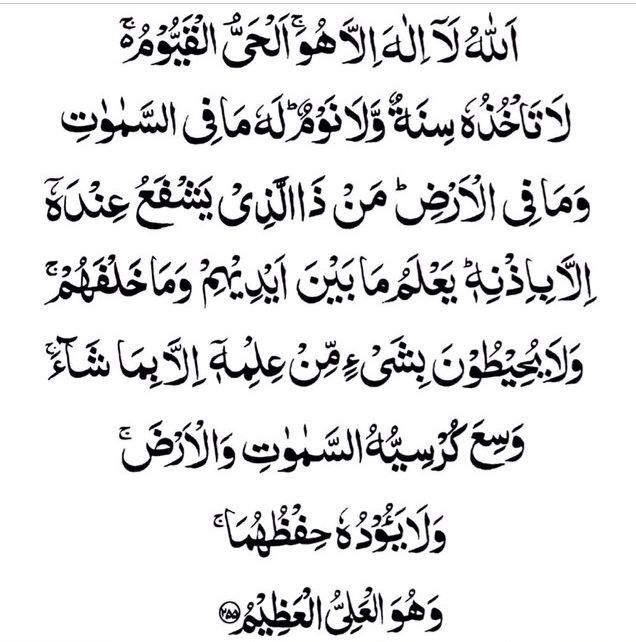 اَللّٰهُ لَاۤ اِلٰهَ اِلَّا هُوَۚ اَلْحَیُّ الْقَیُّوْمُ ۚ۬
لَا تَاْخُذُهٗ سِنَةٌ وَّلَا نَوْمٌ ؕ لَهٗ مَا فِی السَّمٰوٰتِ
وَمَا فِی الْاَرْضِ ؕ مَنْ ذَا الَّذِیْ یَشْفَعُ عِنْدَهٗۤ
اِلَّا بِاِذْنِهٖ ؕ یَعْلَمُ مَا بَیْنَ اَیْدِیْهِمْ وَمَا خَلْفَهُمْ ۚ
وَلَا یُحِیْطُوْنَ بِشَیْءٍ مِّنْ عِلْمِهٖۤ اِلَّا بِمَا شَآءَ ۚ
وَسِعَ كُرْسِیُّهُ السَّمٰوٰتِ وَالْاَرْضَ ۚ
وَلَا یَـُٔوْدُهٗ حِفْظُهُمَا ۚ
وَهُوَ الْعَلِیُّ الْعَظِیْمُ ۝۲۵۵